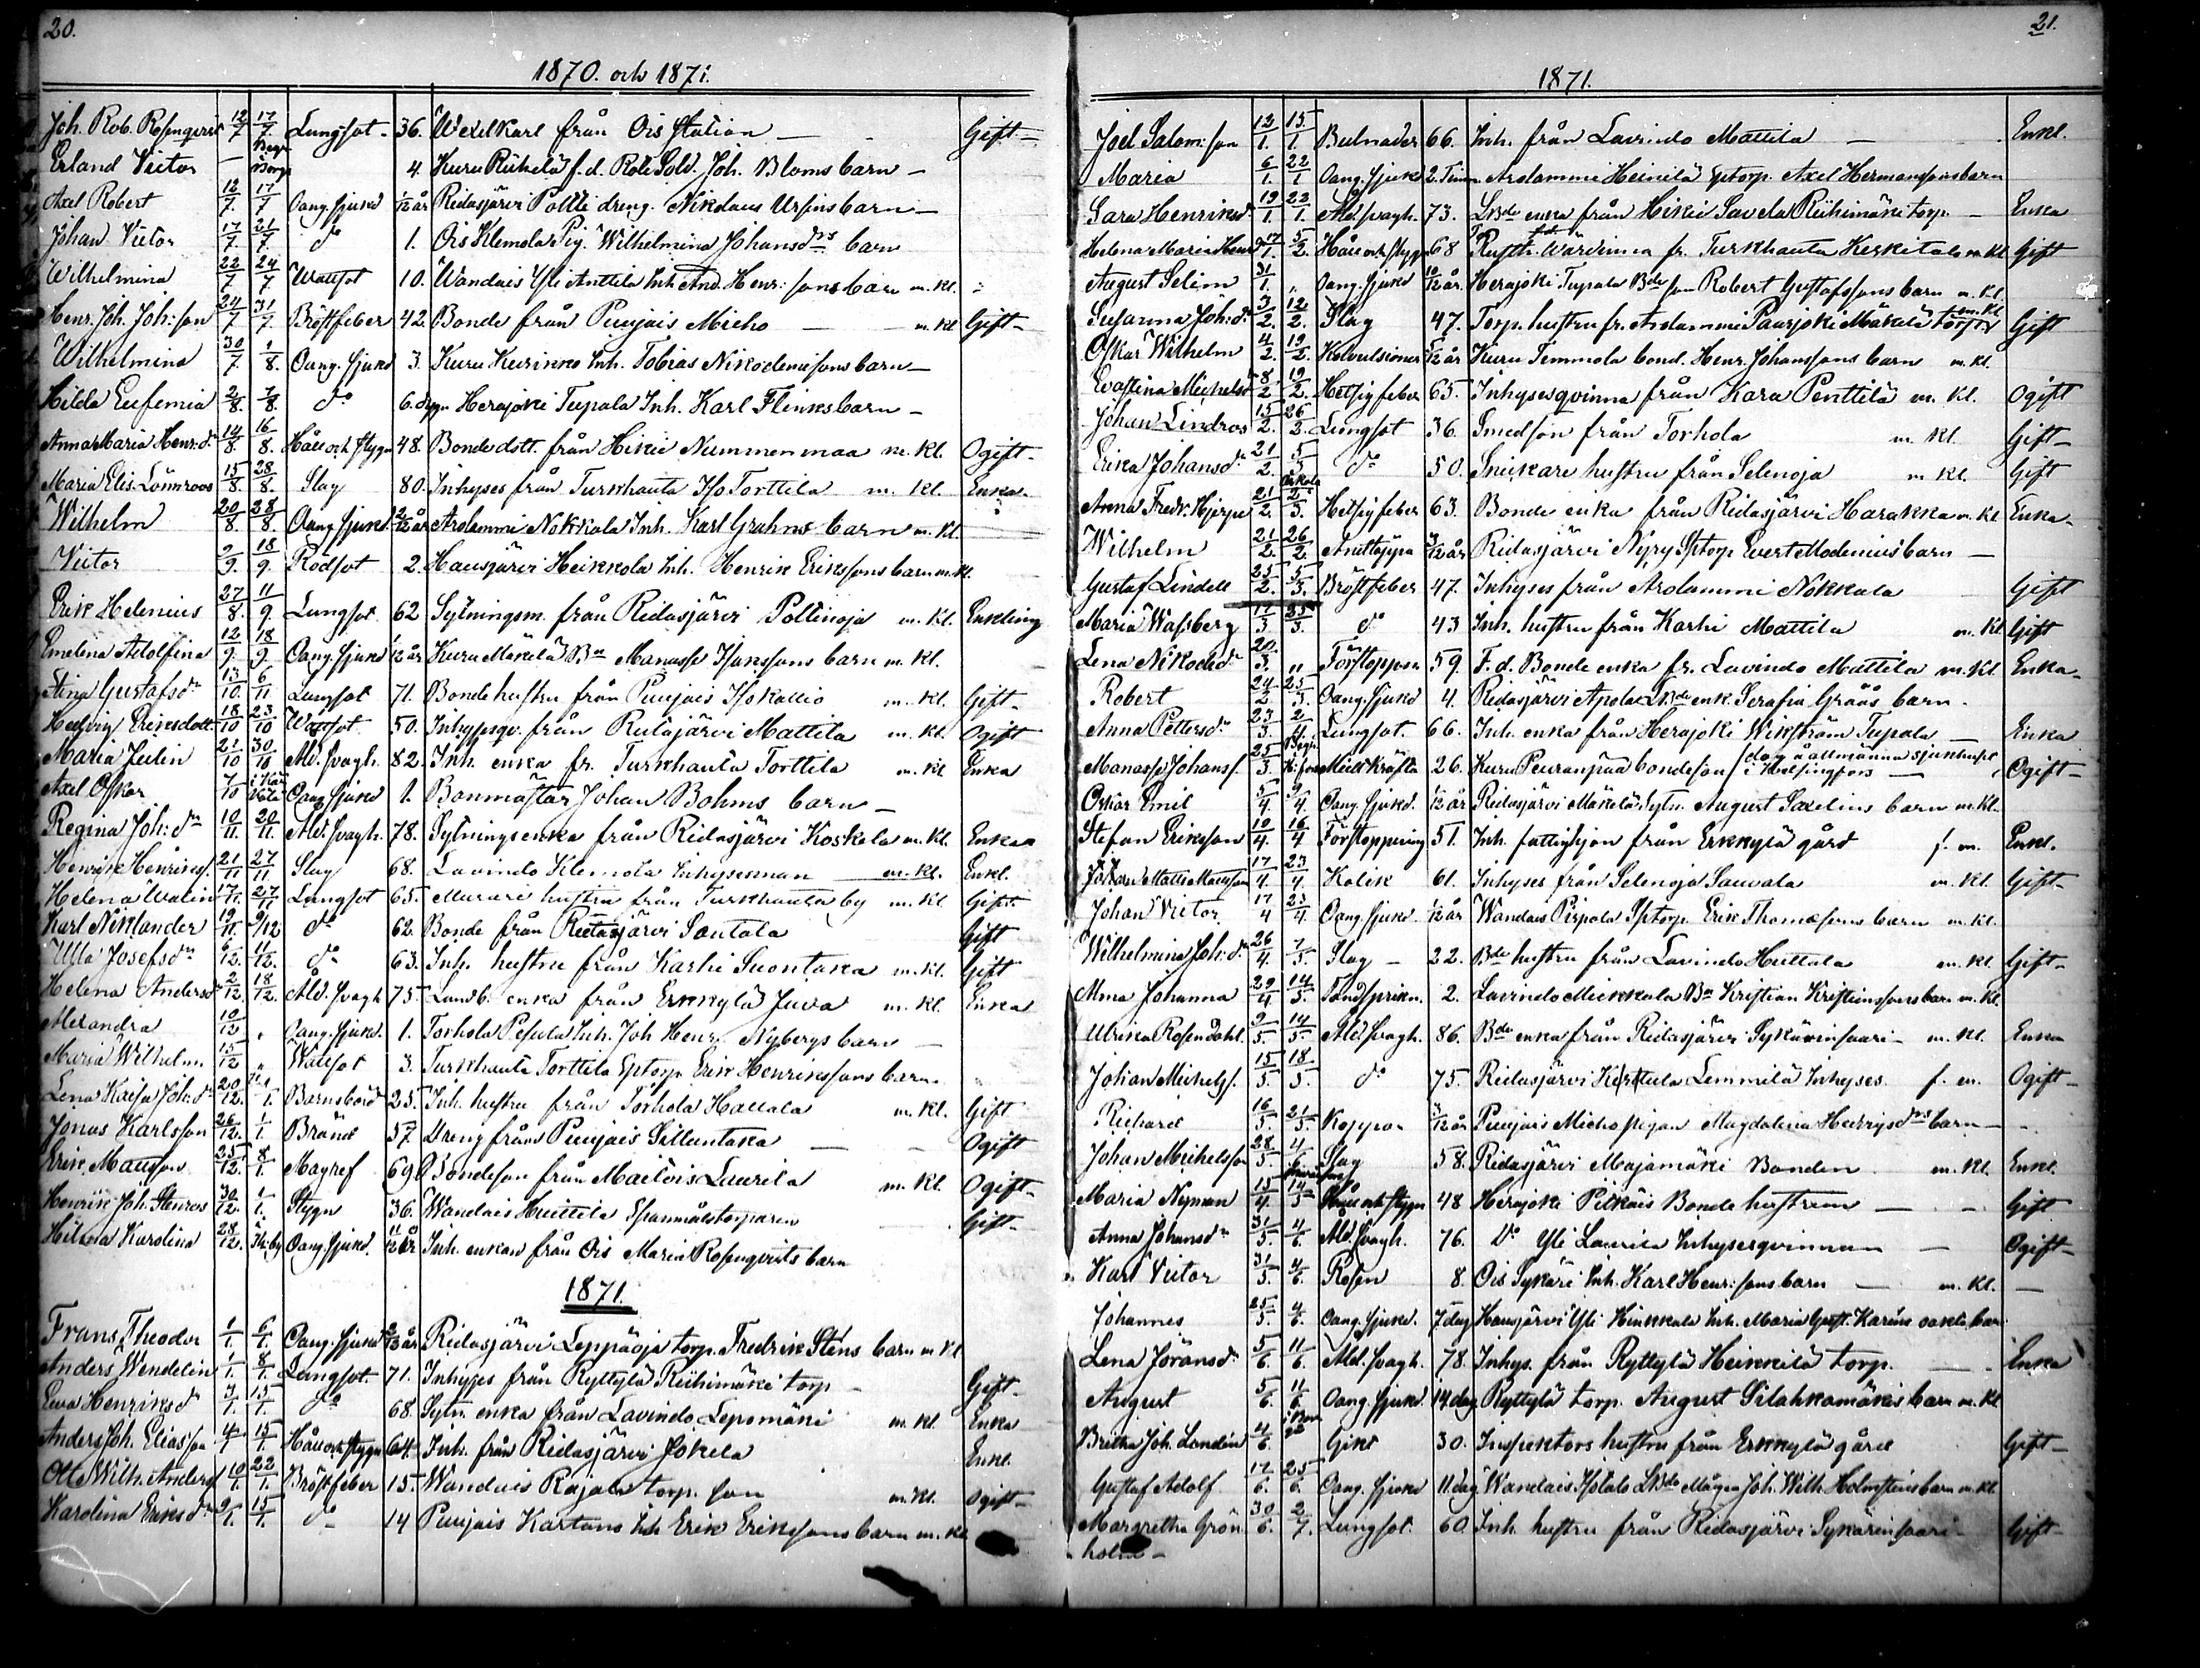 20.
1870. och 1871.
Joh. Rob. Rosenqvist 12/7 17/7 Lungsot 36. Wexelkarl från Ois Station — Gift
Erland Victor — Begr. i Borgå 4. Kuru Riihelä f.d. Rote Sold. Joh. Bloms barn —
Axel Robert 12/7. 17/7 Oang. sjukd 1/12 år Ridasjärvi Poltti dreng. Nikolaus Ursins barn —
Johan Victor 17/7. 21/7. do 1. Ois Klemola Pig. Wilhelmina Johansdrs barn
Wilhelmina 22/7 24/7 Wattsot 10. Wandais Yli Anttila Inh. And. Henr:sons barn m. kl.
Henr. Joh. Joh:son 24/7 31/7. Bröstfeber 42. Bonde från Puujais Micho — m. kl Gift
Wilhelmina 30/7. 1/8. Oang. sjukd 3. Kuru Kurikko Inh. Tobias Nikodemisons barn —
Hilda Eufemia 2/8. 7/8. do 6. dygn Herajoki Tupala Inh. Karl Flinks barn —
Anna Maria Henr:dr 14/8 16/8. Håll och stygn 48. Bonde dott. från Hikiä Nummenmaa m. kl. Ogift
Maria Elis. Lönnroos 15/8. 28/8. Slag 80. Inhyses från Turkhauta Iso Torttila m. kl. Enka
Wilhelm 20/8. 28/8. Oang. sjukd. 2/12 år Arolammi Nokkala Inh. Karl Grahns barn m. kl.
Victor 9/9. 18/9. Rödsot 2. Hausjärvi Heikkola Inh. Henrik Erikssons barn m. kl.
Erik Helenius 27/8. 11/9. Lungsot 62 Sytningsm. från Ridasjärvi Poltinoja m. kl. Enkling
Emelina Adolfina 12/9. 18/9. Oang. sjukd 1/12 år Kuru Mäkelä Bn Manasse Isakssons barn m. kl.
Stina Gustafsdr 13/10. 6/11 Lungsot 71. Bonde hustru från Puujais Iso Kallio m. kl. Gift
Hedvig Eriksdott. 18/10 23/10 Wattsot 50. Inhysesqv. från Ridasjärvi Mattila m. kl. Ogift
Maria Julin 21/10 30/10 Åld. svagh. 82. Inh. enka fr. Turkhauta Torttila m. kl Enka
Axel Oskar 7/10 Oang. sjukd 1. Banmästar Johan Bohms barn —
Regina Joh:dr 10/11. 20/11. Åld. svagh. 78. Sytningsenka från Ridasjärvi Koskela m. kl. Enka
Henrik Henrikss. 21/11 27/11 Slag 68. Lavindo Klemola Inhysesman m. kl. Enkl.
Helena Walin 17/11. 27/11 Lungsot 65. Murare hustru från Turkhauta by m. kl Gift
Karl Niklander 19/11. 9/12 do 62. Bonde från Ridasjärvi Santala Gift
Ulla Josefsdr 6/12. 11/12. do 63. Inh. hustru från Karhi Suontaka m. kl. Gift
Helena Andersdr 2/12. 18/12. Åld. svagh 75. Landb. enka från Erkkylä Juva m. kl. Enka
Alexandra 10/12 Oang. sjukd. 1. Torhola Pesula Inh. Joh. Henr. Nybergs barn —
Maria Wilhelm. 15/12 „ Wattsot 3. Turkhauta Torttila Sptorp. Erik Henrikssons barn.
Lena Kaisa Joh:dr 20/12. 1/1. Barnsbörd 25. Inh. hustru från Torhola Hattala m. kl. Gift
Jonas Karlsson 26/12. 1/1. Bränd 57. Dreng från Puujais Silluntaka — Ogift
Erik Mattsson 25/12. 8/1. Magref 69. Bondeson från Maitois Laurila m. kl. Ogift
Henrik Joh. Stenros 30/12. 1/1. Stygn 36. Wandais Huittila Spanmålstorparen Gift
Hilma Karolina 28/12. Oang. sjukd. 11/12 år Inh. enkan från Ois Maria Rosenqvists barn
1871.
Frans Theodor 1/1. 6/1. Oang. sjukd 2/12 år Ridasjärvi Leppäoja torp. Fredrik Stens barn m kl
Anders Wendelin 1/1. 8/1. Lungsot 71. Inhyses från Ryttylä Riihimäki torp — Gift
Eva Henriksdr 7/1. 15/1. do 68. Sytn. enka från Lavindo Lepomäki m. kl Enka
Anders Joh. Eliasson 4/1 15/1. Håll och stygn 64. Inh. från Ridasjärvi Jokela Enkl.
Otto Wilh. Anderss 10/1. 22/1. Bröstfeber 15. Wandais Rajala torp. son m. kl. Ogift
Karolina Eriksdr 9/1. 15/1. do 14 Puujais Kartano Inh Erik Erikssons barn m. kl
21.
1871.
Joel Salom:son 12/1. 15/1. Bulnader 66. Inh. från Lavindo Mattila — Enkl.
Maria 6/1. 22/1 Oang. sjukd 2. Tim. Arolammi Heinilä Sptorp. Axel Hermanssons barn
Sara Henriksdr 19/1. 22/1. Åld. svagh. 73. LBde enka från Hikiä Savela Riihimäki torp — Enka
Helena Maria Henr.dr 17/1. 5/2. Håll och stygn 68 Rusth. Wärdinna fr. Turkhauta Keskitalo m. kl Gift
August Selim 31/1. „ Oang. sjukd 10/12 år. Herajoki Tupala Bdeson Robert Gustafssons barn m. kl.
Susanna Joh:dr 3/2. 12/2. Slag 47. Torp. hustru fr. Arolammi Paarjoki Mäkelä torp Gift
Oskar Wilhelm 4/2. 19/2. Kolvulsioner 5/12 år Kuru Temmola bond. Henr. Johanssons barn m. kl.
Evastina Michelsdr 8/2 19/2. Hetsig feber 65. Inhysesqvinna från Kara Penttilä m. kl. Ogift
Johan Lindros 15/2. 26/2. Lungsot 36. Smedson från Torhola m. kl. Gift
Erika Johansdr 21/2. 5/3 do 50. Snickare hustru från Selenoja m kl. Gift
Anna Fredr. Hjerpe 21/2. Hetsig feber 63. Bonde enka från Ridasjärvi Harakka m. kl Enka
Wilhelm 21/2. 26/2. Andtäppa 3/12 år Ridasjärvi Nyry Sptorp Evert Modenius barn —
Gustaf Lindell 25/2. 5/3. Bröstfeber 47. Inhyses från Arolammi Nokkala Gift
Maria Wassberg 12/3. 25/3. do 43 Inh. hustru från Karhi Mattila m. kl Gift
Lena Nikod:dr 20/3. „ Förstoppn 59. F. d. Bonde enka fr. Lavindo Mattila m. kl. Enka
Robert 24/2 25/3. Oang. sjukd 4. Ridasjärvi Apola LBde enk. Serafia Gröös barn.
Anna Pettersdr 23/3. 2/4. Lungsot. 66. Inh. enka från Herajoki Wikström Tupala — Enka
Manasse Johanss. 25/3. Begr. H:fors 26. Kuru Peuranpää bondeson (dog å allmänna sjukhuset i Helsingfors — Ogift
Oskar Emil 5/4. 9/4 Oang. sjukd. 1/12 år Ridasjärvi Mäkelä Sytn. August Saxelins barn m. kl.
Stefan Eriksson 10/4. 16/4 Förstoppning 51. Inh. fattighjon från Erkkylä gård f. m. Enkl.
Johan Mattsson 17/4. 23/4. Kolik 61. Inhyses från Selenoja Sauvala m. kl. Gift
Johan Victor 17/4 23/4. Oang. sjukd. 1/12 år Wandais Pirpola Sptorp. Erik Thomassons barn m. kl.
Wilhelmina Joh:dr 26/4. 7/5. Slag — 22. Bde hustru från Lavindo Huttala m. kl Gift
Alma Johanna 29/4 14/5. Tandsprickn. 2. Lavindo Mickkula Bn Kristian Kristianssons barn m. kl.
Ulrika Rosendahl. 9/5. 14/5. Åld. svagh. 86. Bde enka från Ridasjärvi Sykärinsaari m. kl. Enka
Johan Michelss. 15/5. 18/5. do 75. Ridasjärvi Lemmilä Inhyses f. m. Ogift
Richard 16/5. 21/5 Koppor 3/12 år Puujais Micho pigan Magdalena Henriksdrs barn —
Johan Michelsson 28/5. 4/6 Slag 58. Ridasjärvi Majamäki Bonden m. kl. Enkl.
Maria Nyman 15/4. 14/5 Håll och stygn 48 Herajoki Pitkäis Bonde hustrun — Gift
Anna Johansdr 31/5. 4/6. Åld. svagh. 76. Do Yli Laurila Inhysesqvinnan — Ogift
Karl Victor 31/5. 4/6. Rosen 8. Ois Sykäri Inh. Karl Henr:sons barn — m. kl. —
Johannes 25/5. 4/6. Oang. sjukd. 7 dag Hausjärvi Yli Hinkkala Inh. Maria Gust. Karins oäkta barn
Lena Jöransdr 5/6. 11/6. Åld. svagh. 78. Inhys. från Ryttylä Heikkilä torp. — Enka
August 5/6. 11/6. Oang. sjukd. 14 dag Ryttylä torp. August Silahkamäkis barn m. kl
Britha Joh. Londén 4/6. Gikt 30. Inspektors hustru från Erkkylä gård Gift
Gustaf Adolf 17/6. 25/6. Oang. sjukd 11 dag Wandais Isotalo LBde Mågen Joh. Wilh. Holmsteins barn m. kl.
Margretha Grön- 30/6. 2/7. Lungsot. 60. Inh. hustru från Ridasjärvi Sykärinsaari — Gift
holm —